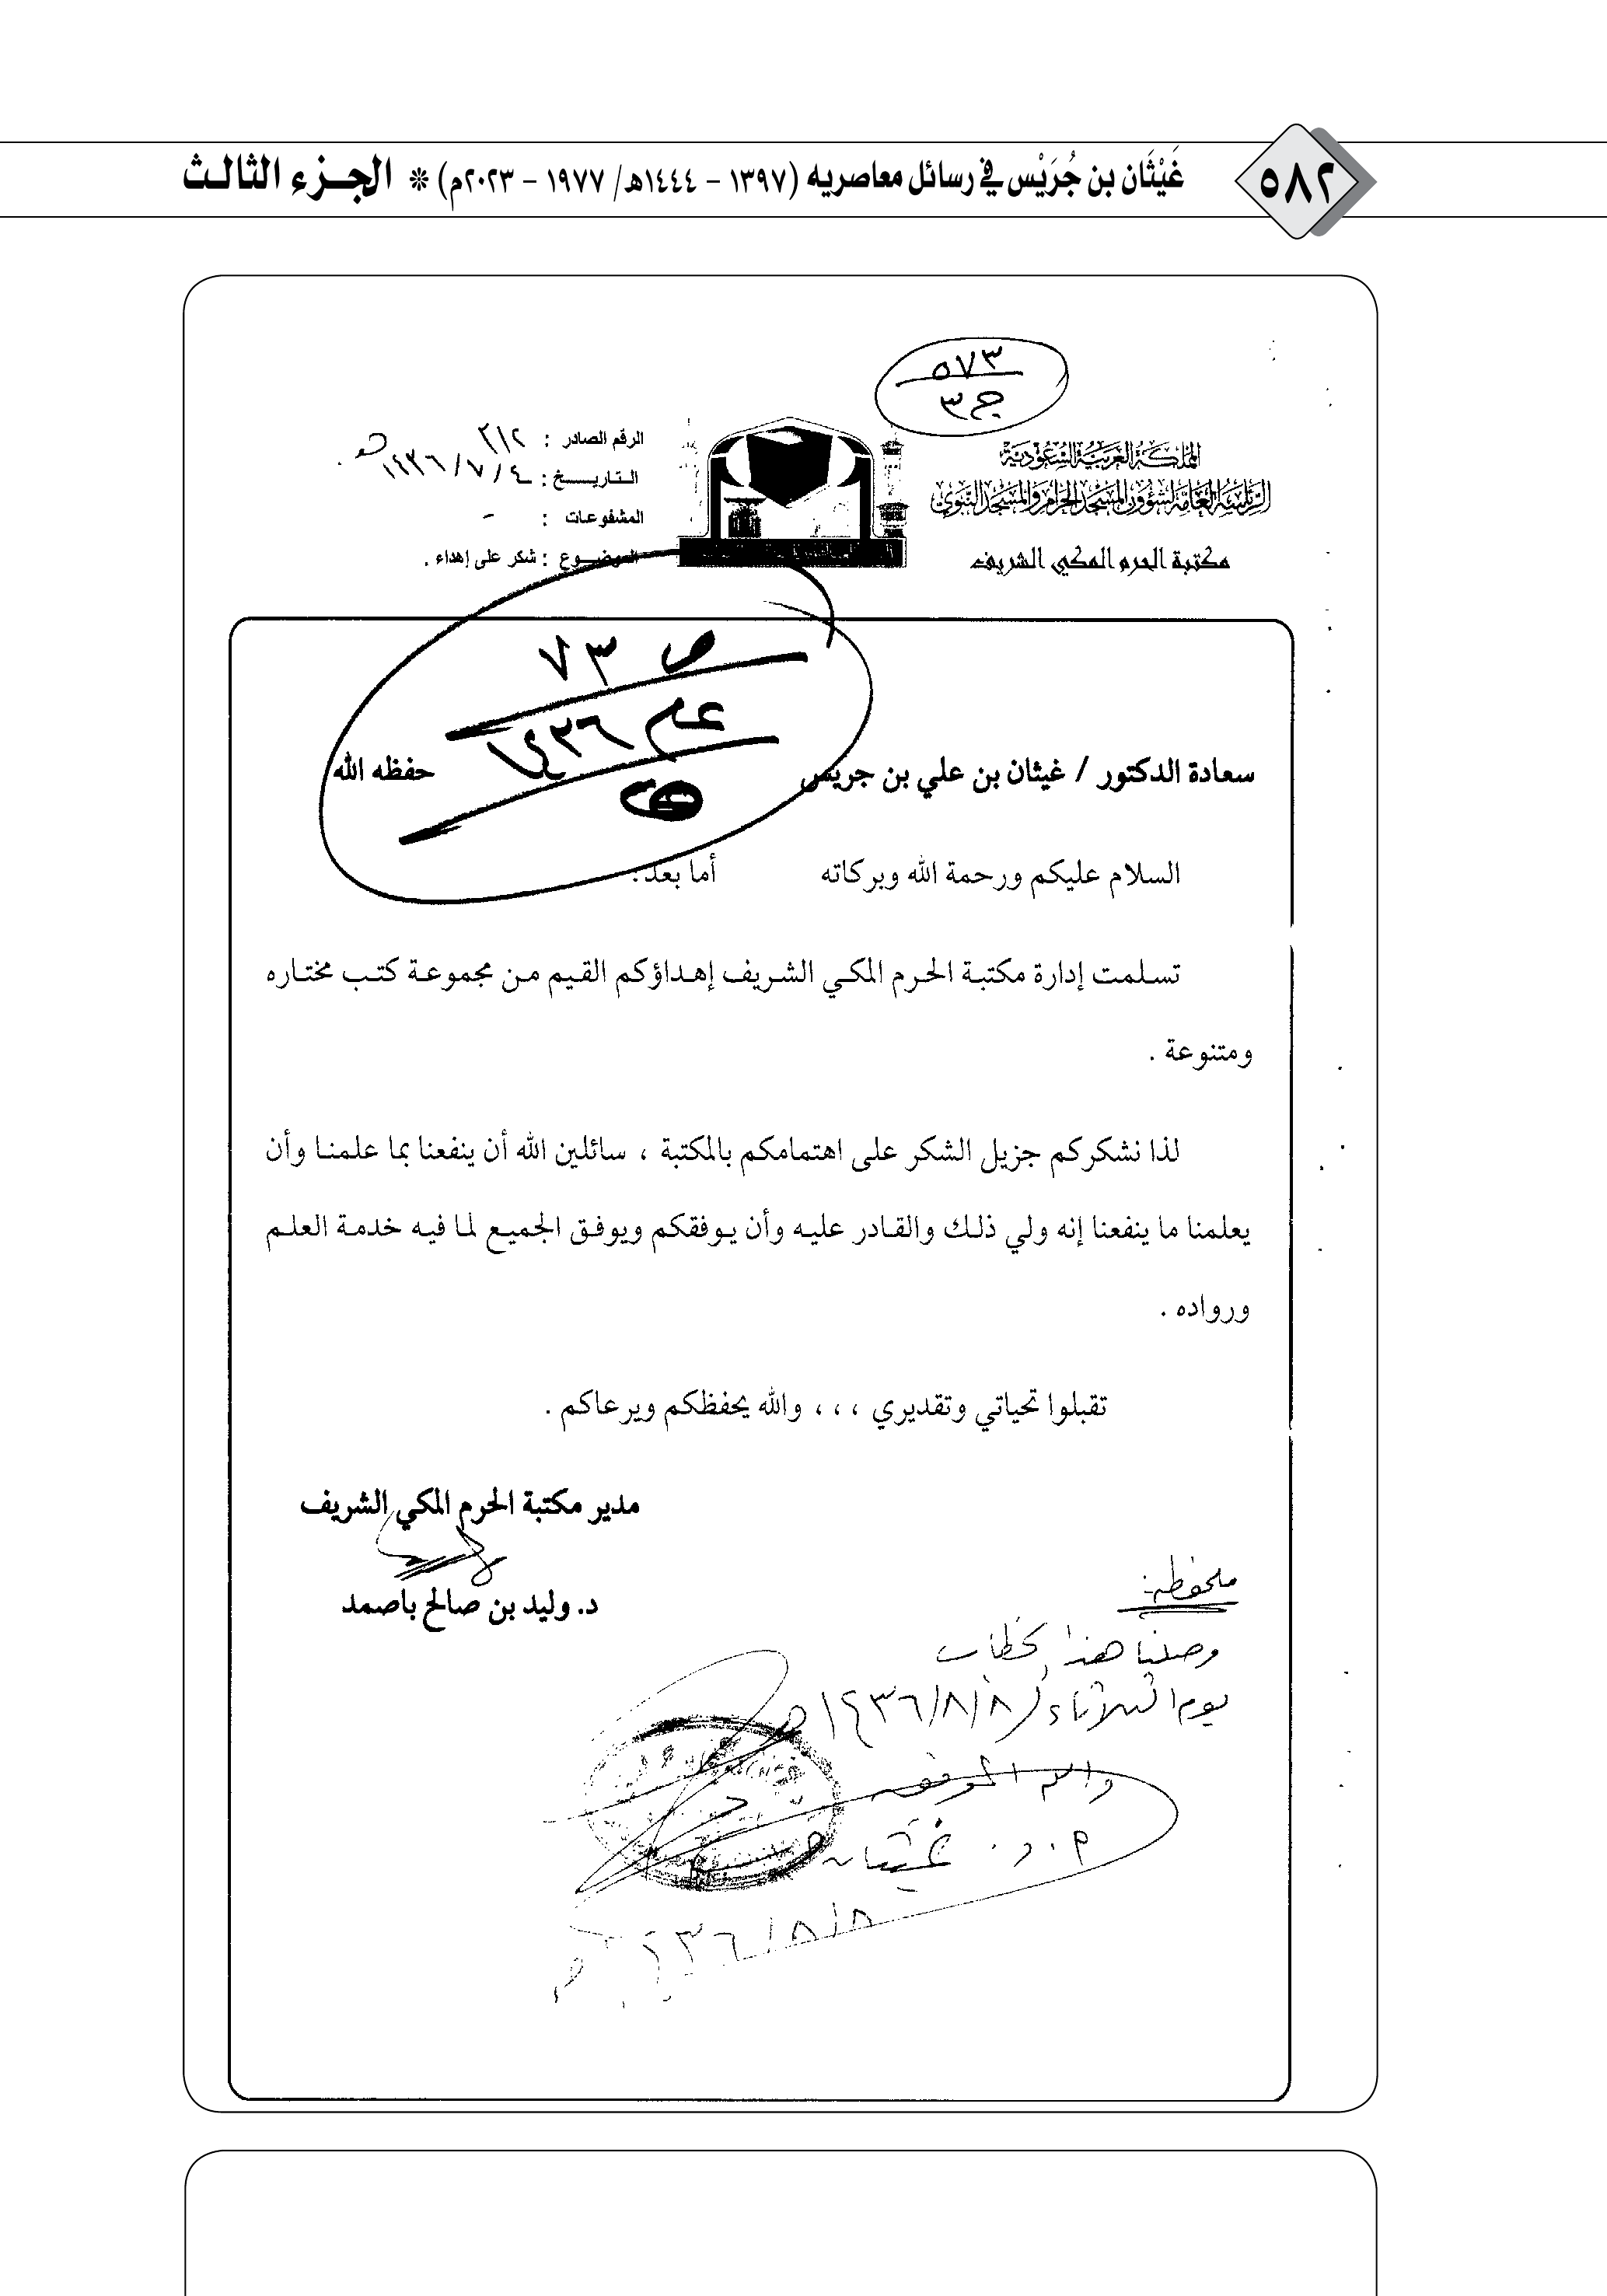 ٥٨٢
غَيْثَان بن جُرَيْس في رسائل معاصريه (١٣٩٧ - ١٤٤٤هـ/ ١٩٧٧ - ٢٠٢٣م) * الجـزء الثالـث
٥٧٣
ج٣
المملكة العربية السعودية
الرئاسة العامة لشؤون المسجد الحرام والمسجد النبوي
مكتبة الحرم المكي الشريف
الرقم الصادر :
التاريـــخ : ٤ / ٧ / ١٤٣٦هـ
المشفوعات : -
الموضـوع : شكر على إهداء .
ص ٧٣
١٤٣٦
سعادة الدكتور / غيثان بن علي بن جريس حفظه الله
السلام عليكم ورحمة الله وبركاته أما بعد :
تسلمت إدارة مكتبة الحرم المكي الشريف إهداؤكم القيم من مجموعة كتب مختاره
ومتنوعة .
لذا نشكركم جزيل الشكر على اهتمامكم بالمكتبة ، سائلين الله أن ينفعنا بما علمنا وأن
يعلمنا ما ينفعنا إنه ولي ذلك والقادر عليه وأن يوفقكم ويوفق الجميع لما فيه خدمة العلم
ورواده .
تقبلوا تحياتي وتقديري ، ، ، والله يحفظكم ويرعاكم .
مدير مكتبة الحرم المكي الشريف
د. وليد بن صالح باصمد
ملحوظة:
وصلنا هذا الخطاب
يوم الثلاثاء ٨/٨/١٤٣٦هـ
والله الموفق
أ.د. غيثان
٨/٨/١٤٣٦هـ